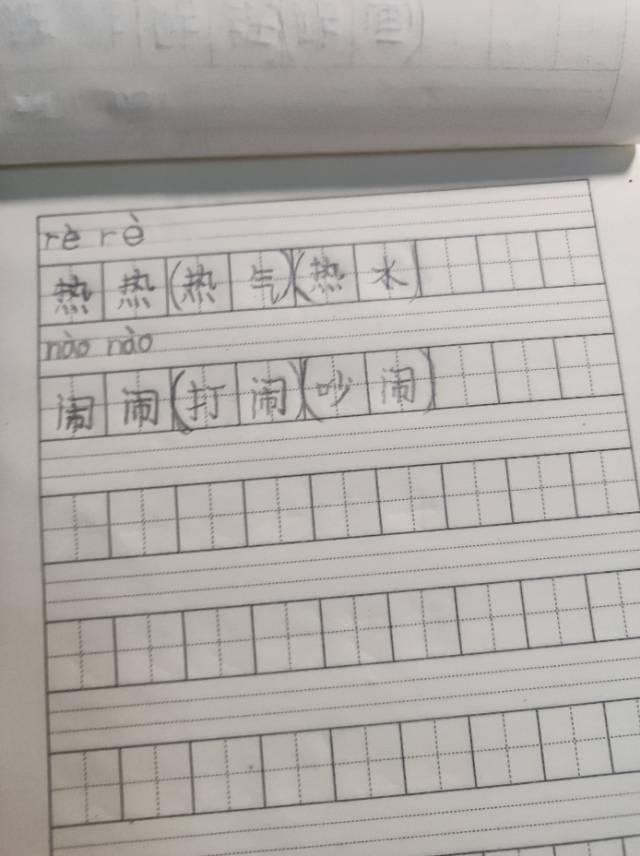 rè rè
热热(热气)(热水)
nào nào
闹闹(打闹)(吵闹)